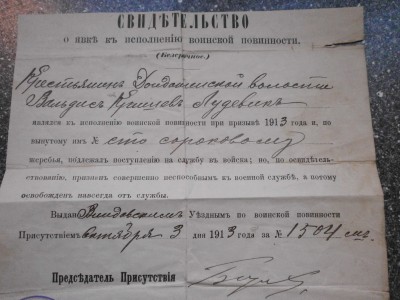 СВИДѢТЕЛЬСТВО
о явкѣ къ исполненію воинской повинности.
(Безсрочное.)
Крестьянинъ волости
Лудевикъ
являлся къ исполненію воинской повинности при призывѣ 1913 года и, по
вынутому имъ № сто сороковому
жеребья, подлежалъ поступленію на службу въ войска; но, по освидѣтель-
ствованію, признанъ совершенно неспособнымъ къ военной службѣ, а потому
освобожденъ навсегда отъ службы.
Выдано Виндавскимъ Уѣзднымъ по воинской повинности
Присутствіемъ октября 3 дня 1913 года за № 1504
Предсѣдатель Присутствія